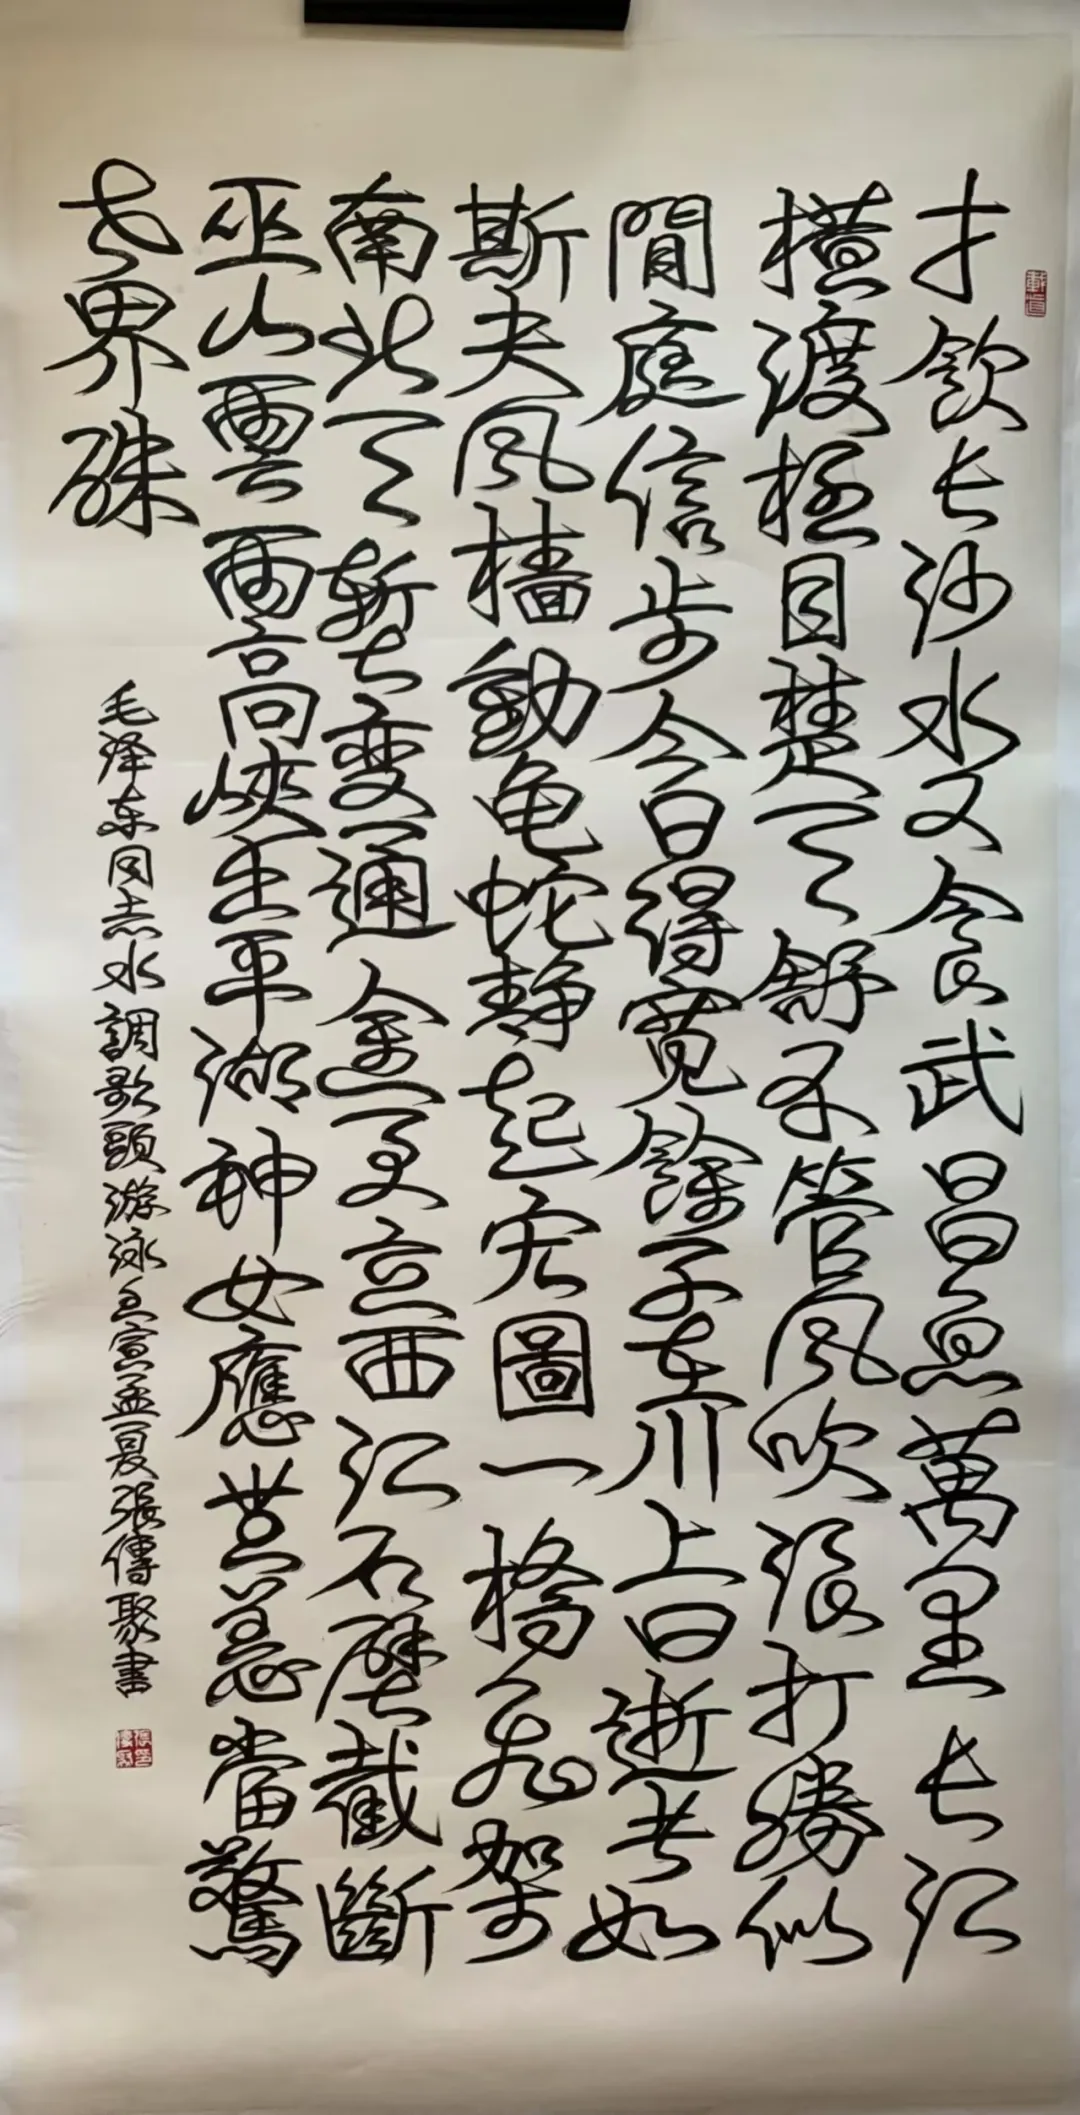 才飲长沙水又食武昌魚萬里长江
橫渡極目楚天舒不管風吹浪打勝似
閒庭信步今日得寬餘子在川上曰逝者如
斯夫風檣動龟蛇静起宏圖一橋飛架
南北天塹變通途更立西江石壁截斷
巫山雲雨高峽出平湖神女應無恙當驚
世界殊
毛泽东同志水調歌頭游泳壬寅孟夏張傳聚書